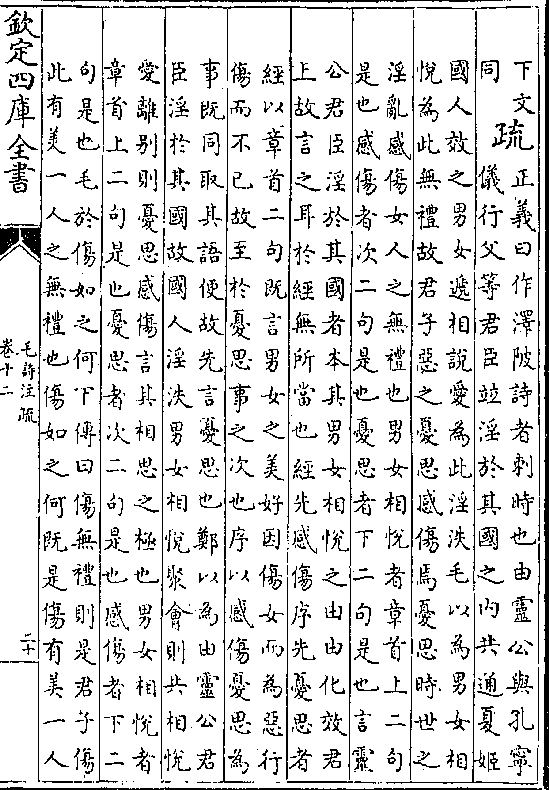 下文
同
疏
正義曰作澤陂詩者刺時也由靈公與孔寧
儀行父等君臣竝淫於其國之内共通夏姬
國人效之男女遞相說愛為此淫泆毛以為男女相
悅為此無禮故君子惡之憂思感傷焉憂思時世之
淫亂感傷女人之無禮也男女相悅者章首上二句
是也感傷者次二句是也憂思者下二句是也言靈
公君臣淫於其國者本其男女相悅之由由化效君
上故言之耳於經無所當也經先感傷序先憂思者
經以章首二句既言男女之美好因傷女而為惡行
傷而不已故至於憂思事之次也序以感傷憂思為
事既同取其語便故先言憂思也鄭以為由靈公君
臣淫於其國故國人淫泆男女相悅聚會則共相悅
愛離别則憂思感傷言其相思之極也男女相悅者
章首上二句是也憂思者次二句是也感傷者下二
句是也毛於傷如之何下傳曰傷無禮則是君子傷
此有美一人之無禮也傷如之何既是傷有美一人
欽定四庫全書
毛詩注疏
卷十二
二十